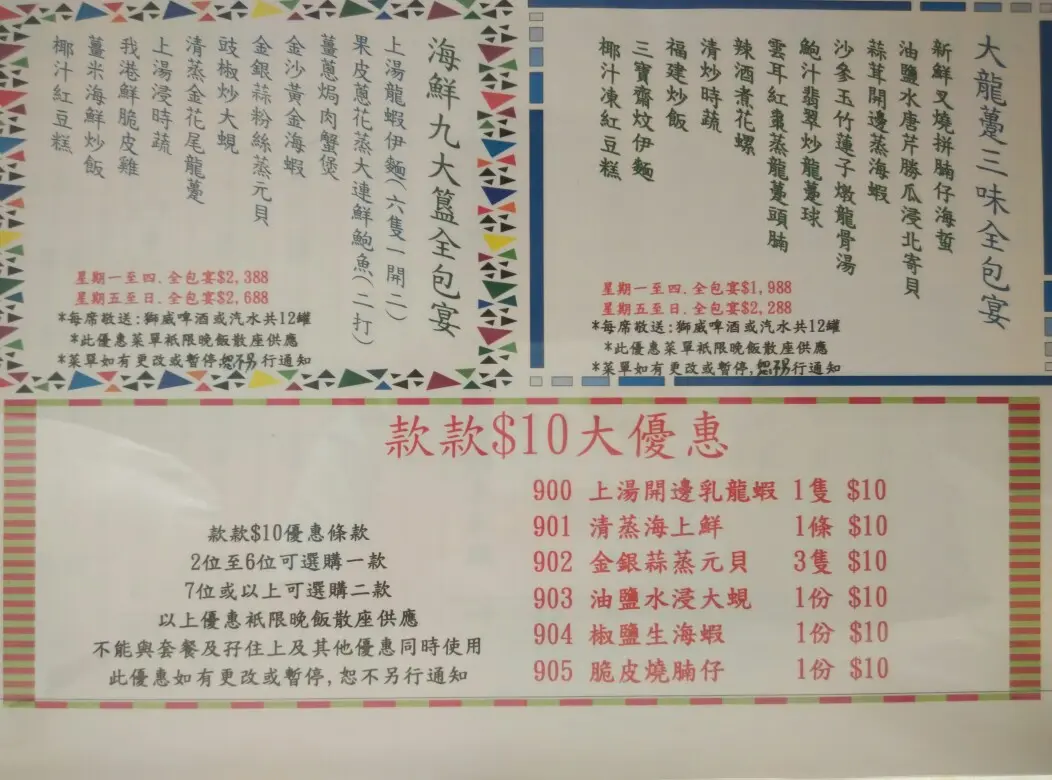 海鮮九大簋全包宴
上湯龍蝦伊麵(六隻一開二)
果皮蔥花蒸大連鮮鮑魚(二打)
薑蔥焗肉蟹煲
金沙黃金海蝦
金銀蒜粉絲蒸元貝
豉椒炒大蜆
清蒸金花尾龍躉
上湯浸時蔬
我港鮮脆皮雞
薑米海鮮炒飯
椰汁紅豆糕
星期一至四.全包宴$2,388
星期五至日.全包宴$2,688
*每席敬送:獅威啤酒或汽水共12罐
*此優惠菜單祇限晚飯散座供應
*菜單如有更改或暫停恕不另行通知
大龍躉三味全包宴
新鮮叉燒拼腩仔海蜇
油鹽水唐芹勝瓜浸北寄貝
蒜茸開邊蒸海蝦
沙參玉竹蓮子燉龍骨湯
鮑汁翡翠炒龍躉球
雲耳紅棗蒸龍躉頭腩
辣酒煮花螺
清炒時蔬
福建炒飯
三寶齋炆伊麵
椰汁凍紅豆糕
星期一至四.全包宴$1,988
星期五至日.全包宴$2,288
*每席敬送:獅威啤酒或汽水共12罐
*此優惠菜單祇限晚飯散座供應
*菜單如有更改或暫停,恕不另行通知
款款$10大優惠
款款$10優惠條款
2位至6位可選購一款
7位或以上可選購二款
以上優惠祇限晚飯散座供應
不能與套餐及孖住上及其他優惠同時使用
此優惠如有更改或暫停,恕不另行通知
900 上湯開邊乳龍蝦 1隻 $10
901 清蒸海上鮮 1條 $10
902 金銀蒜蒸元貝 3隻 $10
903 油鹽水浸大蜆 1份 $10
904 椒鹽生海蝦 1份 $10
905 脆皮燒腩仔 1份 $10